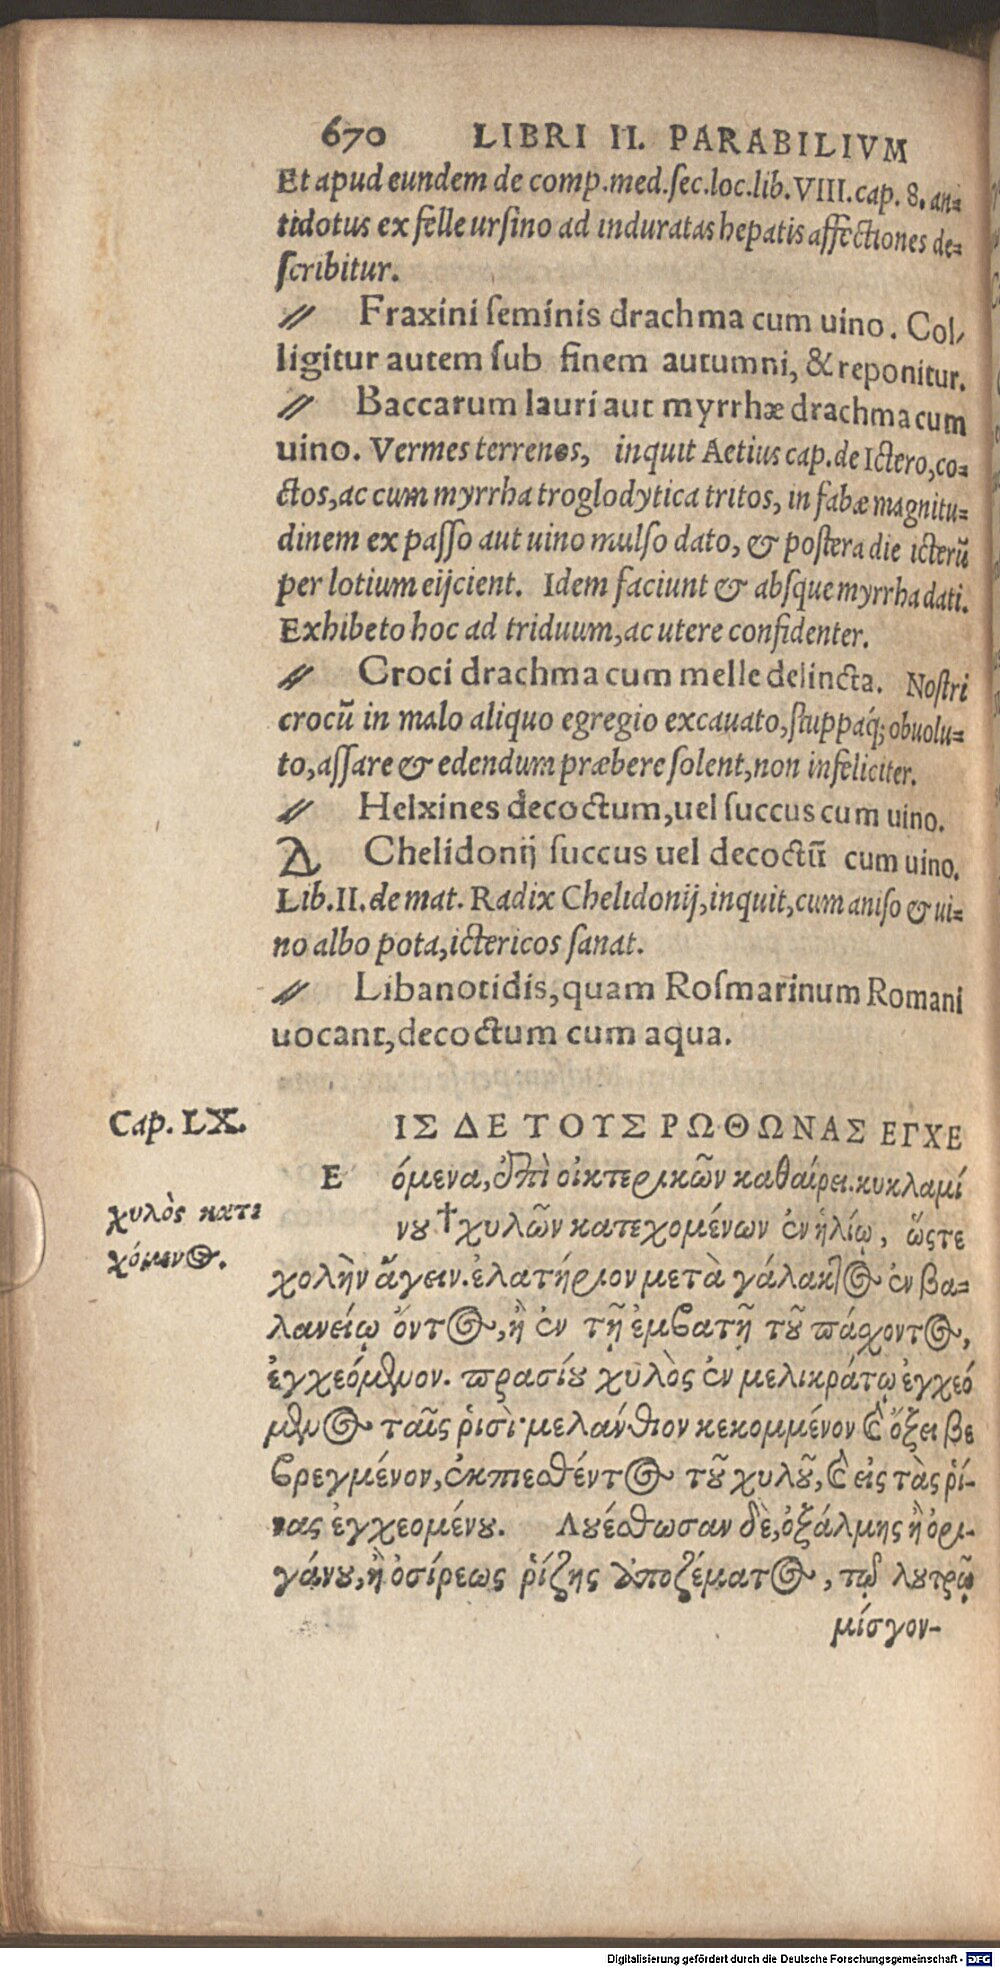 670 LIBRI II. PARABILIVM
Et apud eundem de comp.med.sec.loc.lib.VIII.cap. 8. an-
tidotus ex felle ursino ad induratas hepatis affectiones de-
scribitur.
// Fraxini seminis drachma cum uino. Col-
ligitur autem sub finem autumni, & reponitur.
// Baccarum lauri aut myrrhæ drachma cum
uino. Vermes terrenos, inquit Aetius cap. de Ictero, co-
ctos, ac cum myrrha troglodytica tritos, in fabæ magnitu-
dinem ex passo aut uino mulso dato, & postera die icterũ
per lotium eijcient. Idem faciunt & absque myrrha dati.
Exhibeto hoc ad triduum, ac utere confidenter.
// Croci drachma cum melle delincta. Nostri
crocũ in malo aliquo egregio excauato, stuppáq; obuolu-
to, assare & edendum præbere solent, non infeliciter.
// Helxines decoctum, uel succus cum uino.
Δ Chelidonij succus uel decoctũ cum uino.
Lib. II. de mat. Radix Chelidonij, inquit, cum aniso & ui-
no albo pota, ictericos sanat.
// Libanotidis, quam Rosmarinum Romani
uocant, decoctum cum aqua.
Cap. LX.
ΙΣ ΔΕ ΤΟΥΣ ΡΩΘΩΝΑΣ ΕΓΧΕ
Ε όμενα, ἐπὶ οἰκτερικῶν καθαίρει. κυκλαμί
χυλὸς κατε
χόμενος.
νου † χυλῶν κατεχομένων ἐν ἡλίῳ, ὥςτε
χολὴν ἄγειν. ἐλατήριον μετὰ γάλακτος ἐν βα-
λανείῳ ὄντος, ἢ ἐν τῇ ἐμβατῇ τοῦ πάχοντος,
ἐγχεόμενον. πρασίου χυλὸς ἐν μελικράτῳ ἐγχεό
μενος ταῖς ῥισὶ· μελάνθιον κεκομμένον καὶ ὄξει βε
βρεγμένον, ἐκπιεσθέντος τοῦ χυλοῦ, καὶ εἰς τὰς ῥί-
νας ἐγχεομένου. Λουέσθωσαν δὲ, ὀξάλμης ἢ ὀρι-
γάνου, ἢ ὀσίρεως ῥίζης ἀποζέματος, τῷ λουτρῷ
μίσγον-
Digitalisierung gefördert durch die Deutsche Forschungsgemeinschaft - DFG